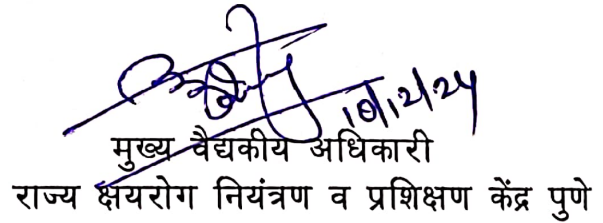 10/12/24
मुख्य वैद्यकीय अधिकारी
राज्य क्षयरोग नियंत्रण व प्रशिक्षण केंद्र पुणे